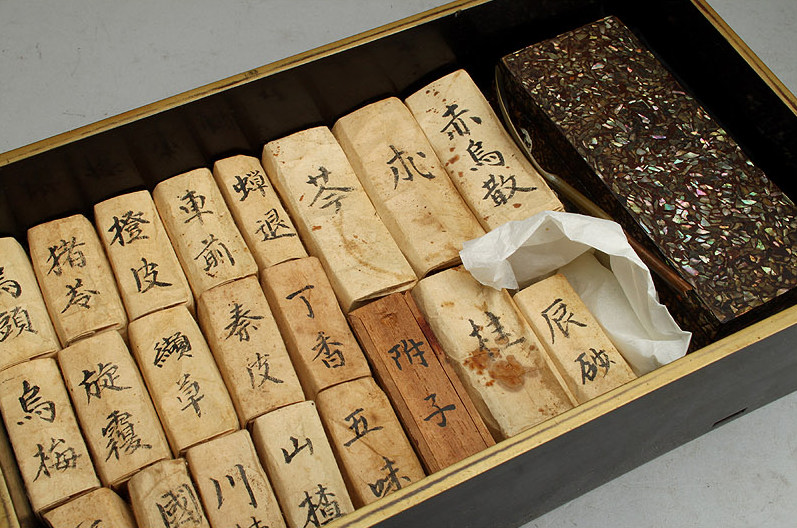 烏頭
猪苓
橙皮
車前
蝉退
芩
朮
赤烏散
烏梅
旋覆
纈草
秦皮
丁香
附子
桂
辰砂
國
川
山楂
五味